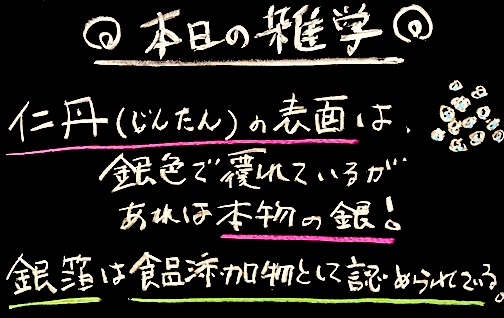 本日の雑学
仁丹(じんたん)の表面は、
銀色で覆れているが
あれは本物の銀!
銀箔は食品添加物として認められている。